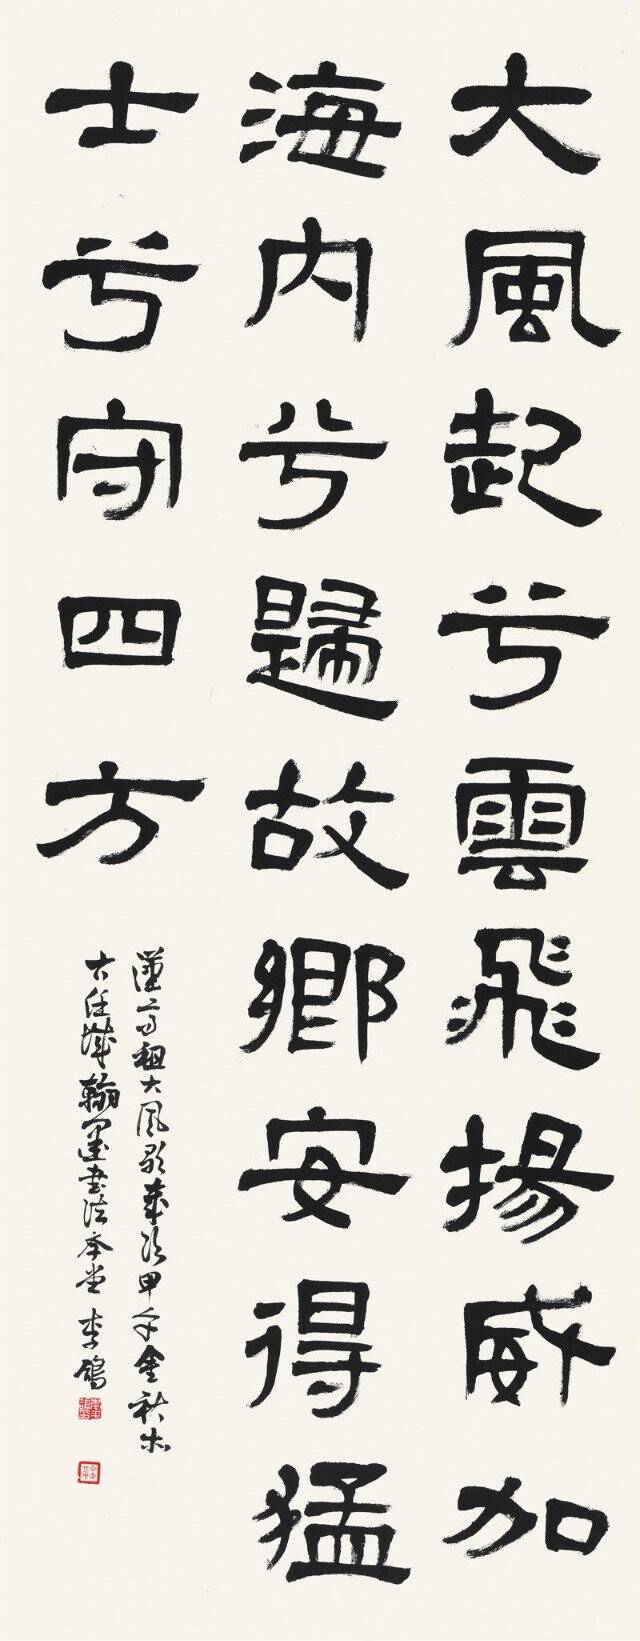 大風起兮雲飛揚威加
海内兮歸故鄉安得猛
士兮守四方
漢高祖大風歌歲次甲午金秋於
古任城翰墨書法李鴿